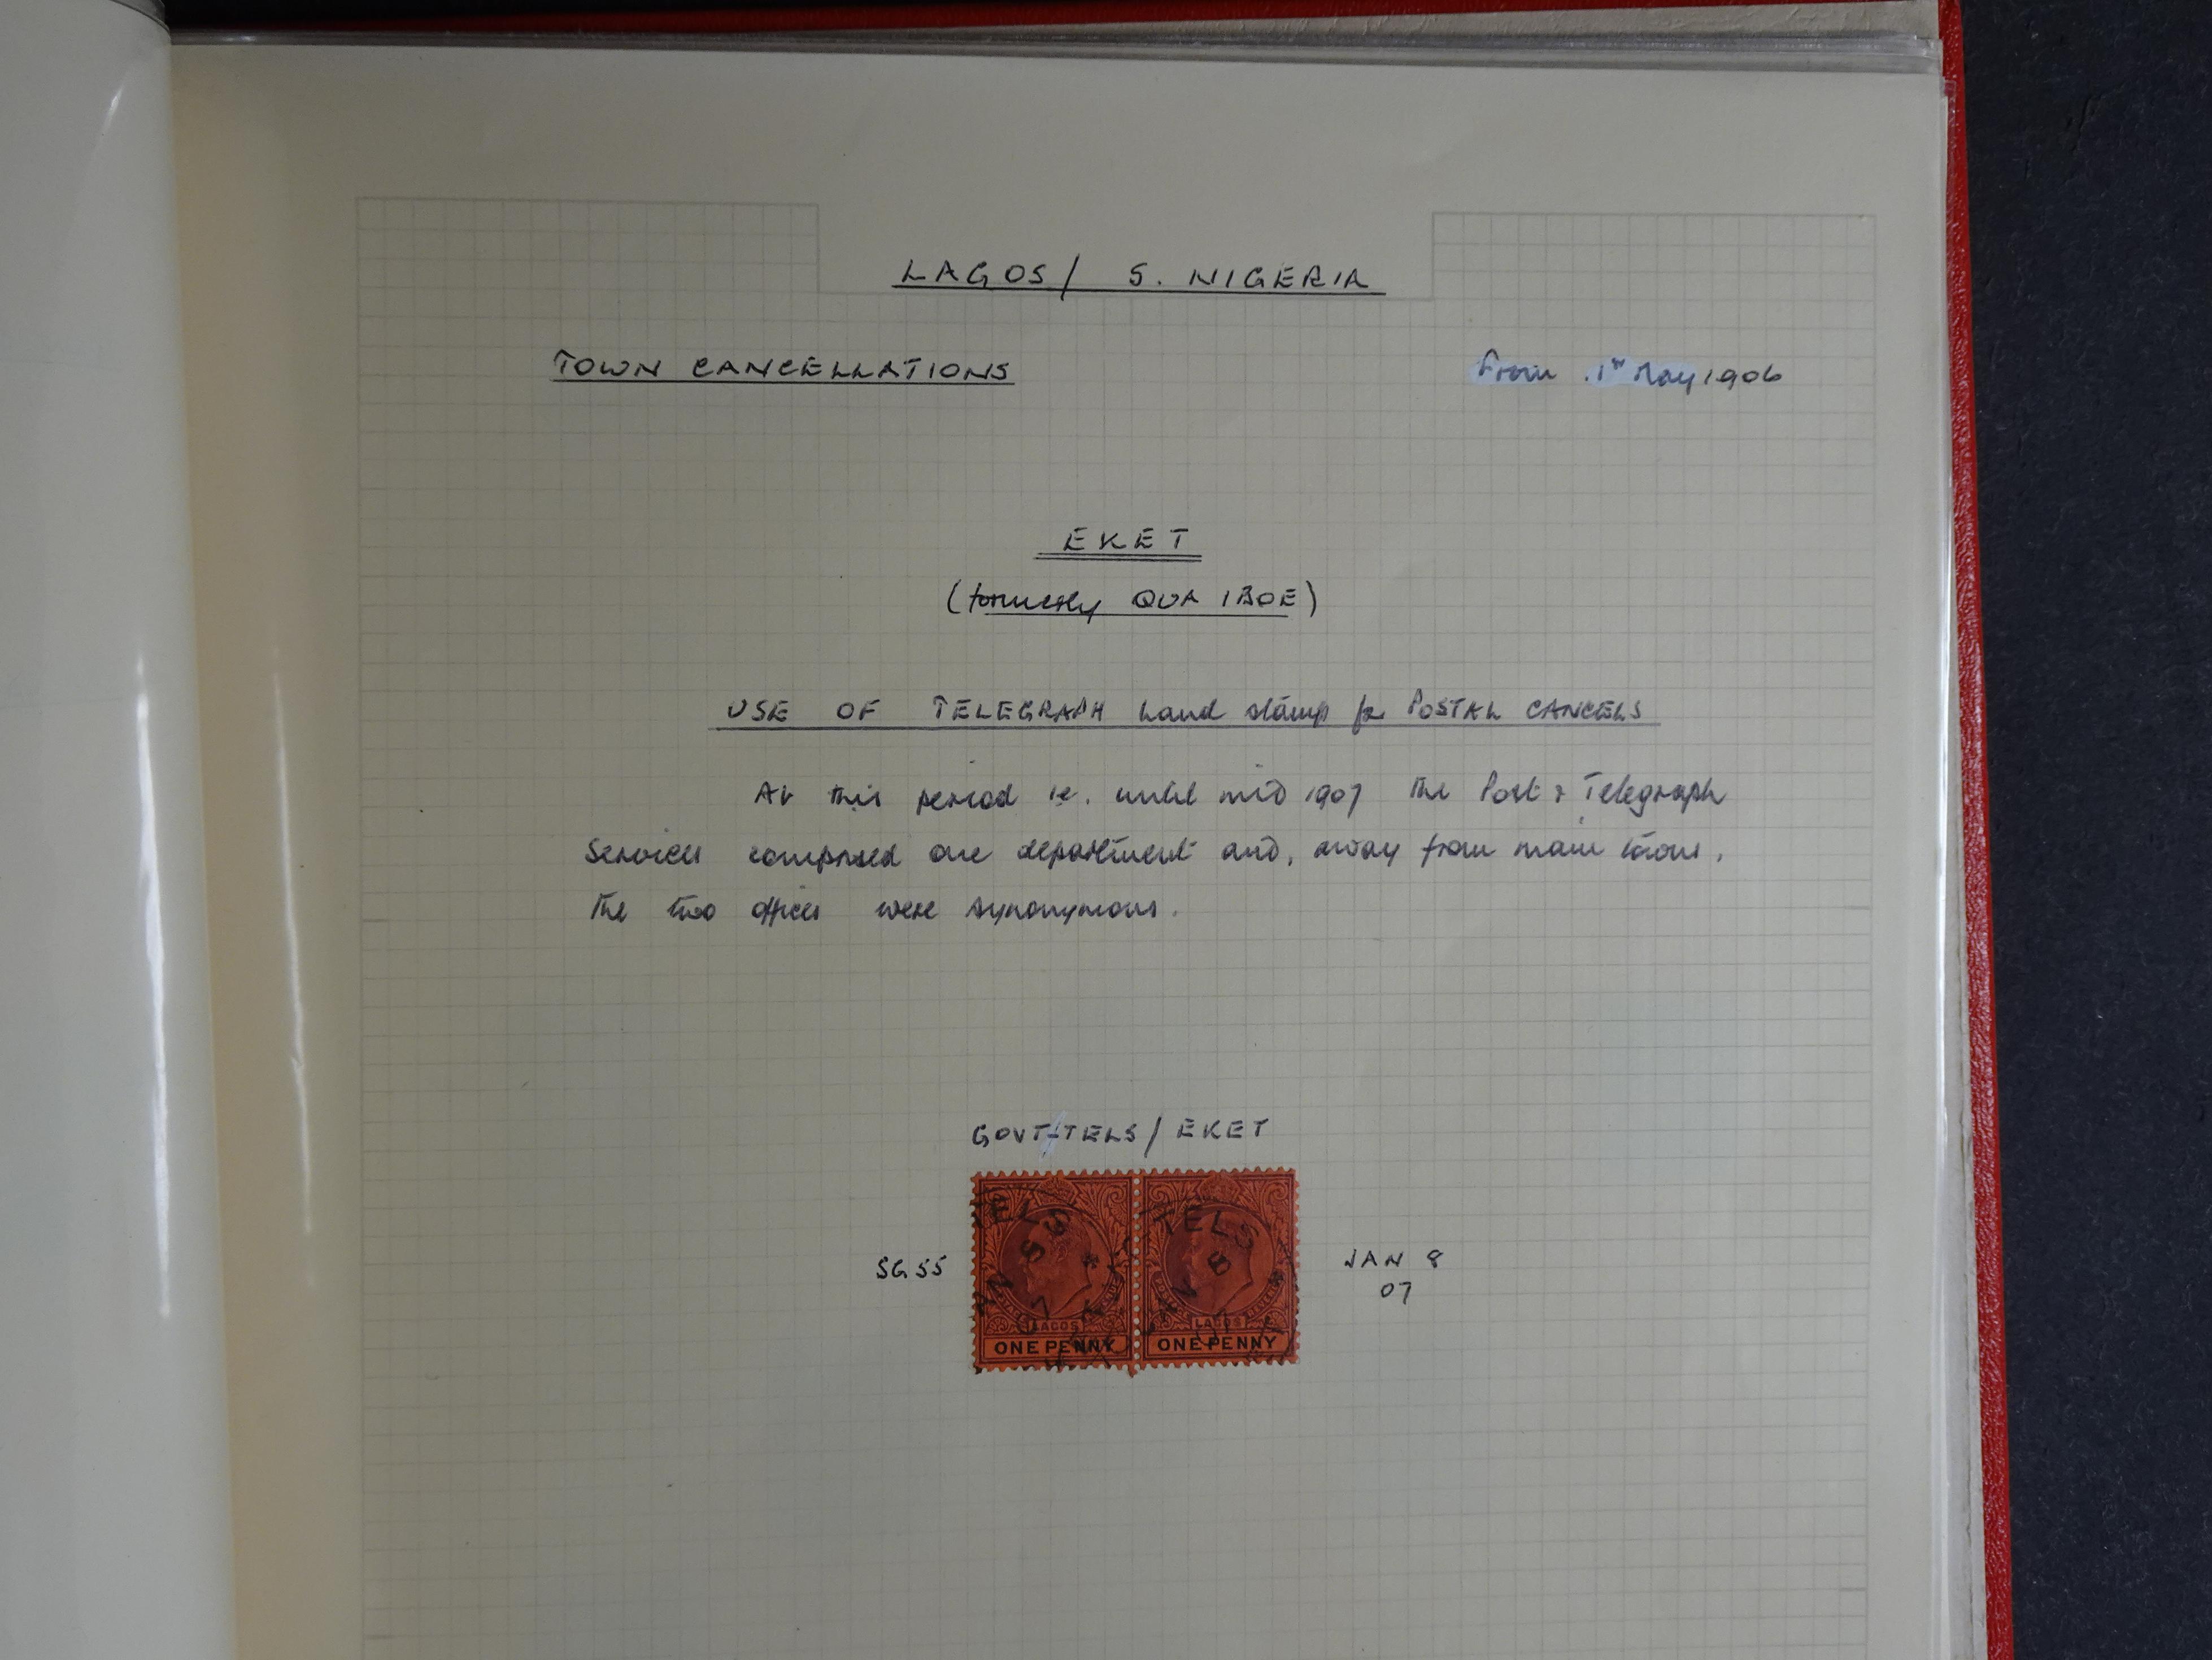 LAGOS/ S. NIGERIA
TOWN CANCELLATIONS
From 1st May 1906
EKET
(formerly QUA IBOE)
USE OF TELEGRAPH hand stamp for POSTAL CANCELS
At this period ie. until mid 1907 the Post & Telegraph
Services comprised one department and, away from main towns,
the two offices were synonymous.
GOVT/TELS/EKET
SG 55
JAN 8
07
TELS
TELS
8
LAGOS
LAGOS
ONE PENNY
ONE PENNY